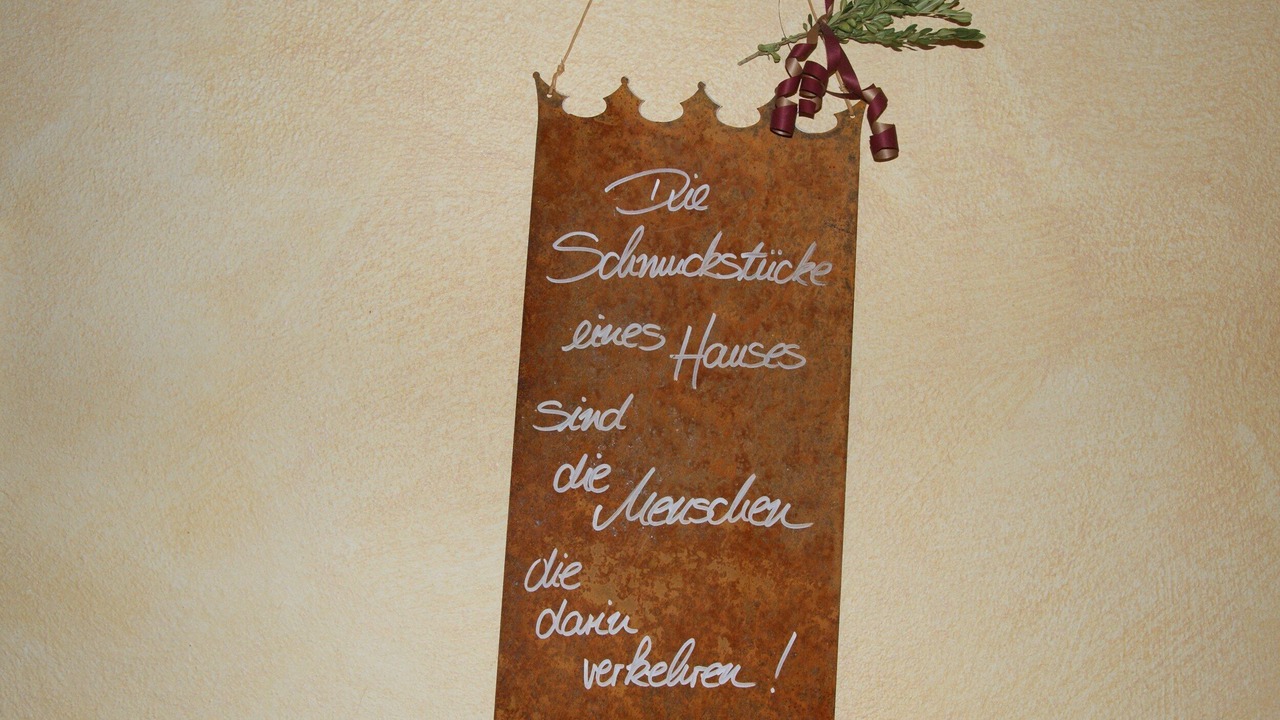 Die
Schmuckstücke
eines Hauses
sind
die Menschen
die
darin
verkehren!